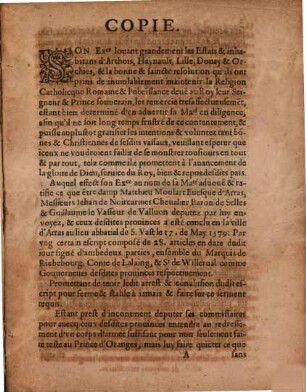 COPIE.
SON Exce louant grandement les Estatz & inha-
bitans d'Arthois, Haynault, Lille, Douay & Or-
chies, & la bonne & saincte resolution qu'ilz ont
prins de inuiolablement maintenir la Religion
Catholicque Romaine & l'obeissance deuë au Roy leur Sei-
gneur & Prince souuerain, les remercie tresaffectueusement,
estant bien determiné d'en aduertir sa Maté en diligence,
afin qu'il en soit long temps fruict de ce contentement,
& puisse auplustot gratifier les intentions & volunté tant
bonnes & Christiennes de sesditz vassaux, veuillant esperer que
iceux ne voudront faillir de se monstrer tousiours en tout
& par tout, telz comme ilz promettent à l'auancement de
la gloire de Dieu, seruice du Roy, bien & repos desditz pais.
Auquel effect son Exce au nom de sa Maté aduouë & rati-
fie ce que frere damp Matthieu Moulart Euesque d'Arras,
Messieurs Iehan de Noircarmes Cheualier Baron de Selles
& Guillaume le Vasseur de Valluon deputez par luy en-
uoyez, & ceux desdites prouinces a esté conclu en la ville
d'Arras au lieu abbatial de S. Vast le 17. de May 1579. Par
vng certain escript composé de 28. articles en date dudit
iour signé d'ambedeux parties, ensemble du Marquis de
Risbourg, Conte de Lalaing, & Sr de Willerual comme
Gouuerneurs desdites prouinces respectiuement.
Promettant de tenir ledit arrest & conclusion dudit es-
cript pour ferme & stable à iamais & faire sur ce serment
requis.
Estant prest d'incontinent deputer ses commissaires
pour auec ceux desdites prouinces entendre au redresse-
ment d'vn corps d'armee suffisant pour non seulement fai-
re teste au Prince d'Oranges, mais luy faire quicter ce quo
A
sans